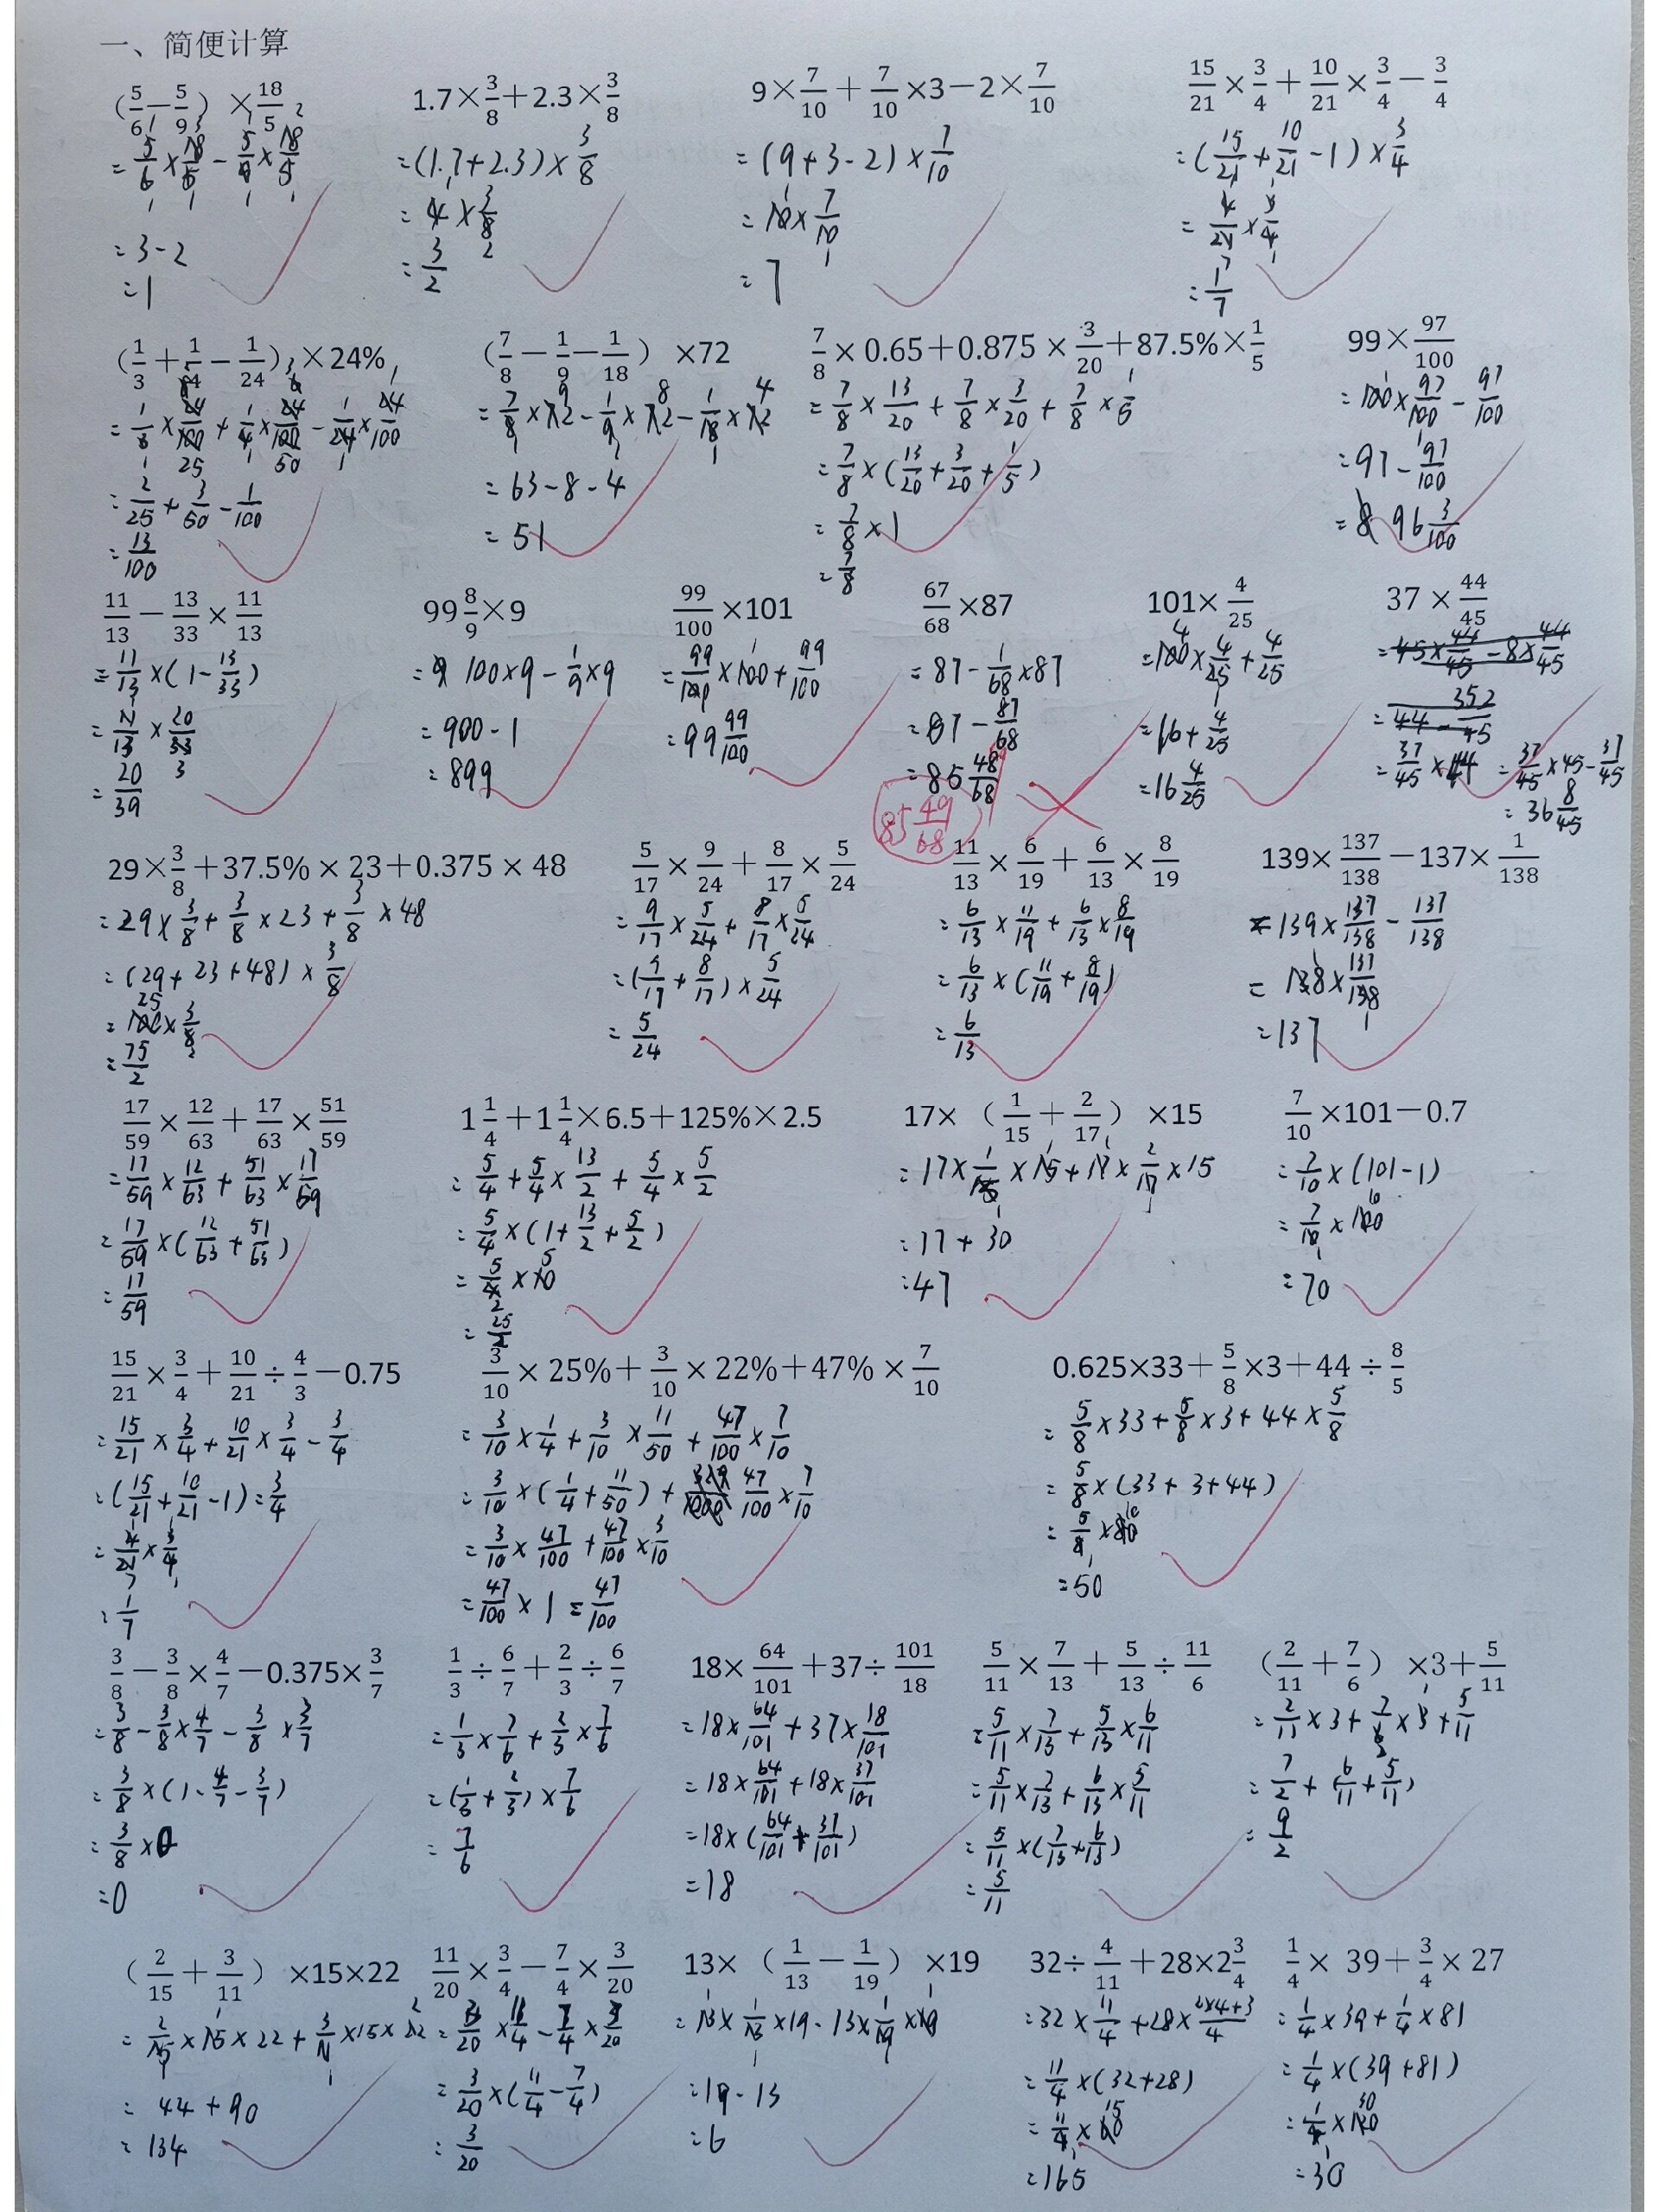 一、简便计算
(5/6-5/9)×18/5
=5/6×18/5-5/9×18/5
=3-2
=1
1.7×3/8+2.3×3/8
=(1.7+2.3)×3/8
=4×3/8
=3/2
9×7/10+7/10×3-2×7/10
=(9+3-2)×7/10
=10×7/10
=7
15/21×3/4+10/21×3/4-3/4
=(15/21+10/21-1)×3/4
=4/21×3/4
=1/7
(1/3+1/4-1/24)×24%
=1/3×24/100+1/4×24/100-1/24×24/100
=2/25+3/50-1/100
=13/100
(7/8-1/9-1/18)×72
=7/8×72-1/9×72-1/18×72
=63-8-4
=51
7/8×0.65+0.875×3/20+87.5%×1/5
=7/8×13/20+7/8×3/20+7/8×1/5
=7/8×(13/20+3/20+1/5)
=7/8×1
=7/8
99×97/100
=100×97/100-97/100
=97-97/100
=96 3/100
11/13-13/33×11/13
=11/13×(1-13/33)
=11/13×20/33
=20/39
99 8/9×9
=100×9-1/9×9
=900-1
=899
99/100×101
=99/100×100+99/100
=99 99/100
67/68×87
=87-1/68×87
=87-87/68
=85 48/68
85 49/68
101×4/25
=100×4/25+4/25
=16+4/25
=16 4/25
37×44/45
=45×44/45-8×44/45
=44-352/45
=37/45×44=37/45×45-37/45
=36 8/45
29×3/8+37.5%×23+0.375×48
=29×3/8+3/8×23+3/8×48
=(29+23+48)×3/8
=100×3/8
=75/2
5/17×9/24+8/17×5/24
=9/17×5/24+8/17×5/24
=(9/17+8/17)×5/24
=5/24
11/13×6/19+6/13×8/19
=6/13×11/19+6/13×8/19
=6/13×(11/19+8/19)
=6/13
139×137/138-137×1/138
=139×137/138-137/138
=138×137/138
=137
17/59×12/63+17/63×51/59
=17/59×12/63+51/63×17/59
=17/59×(12/63+51/63)
=17/59
1 1/4+1 1/4×6.5+125%×2.5
=5/4+5/4×13/2+5/4×5/2
=5/4×(1+13/2+5/2)
=5/4×10
=25/2
17×(1/15+2/17)×15
=17×1/15×15+17×2/17×15
=17+30
=47
7/10×101-0.7
=7/10×(101-1)
=7/10×100
=70
15/21×3/4+10/21÷4/3-0.75
=15/21×3/4+10/21×3/4-3/4
=(15/21+10/21-1)=3/4
=4/21×3/4
=1/7
3/10×25%+3/10×22%+47%×7/10
=3/10×1/4+3/10×11/50+47/100×7/10
=3/10×(1/4+11/50)+47/100×7/10
=3/10×47/100+47/100×3/10
=47/100×1=47/100
0.625×33+5/8×3+44÷8/5
=5/8×33+5/8×3+44×5/8
=5/8×(33+3+44)
=5/8×80
=50
3/8-3/8×4/7-0.375×3/7
=3/8-3/8×4/7-3/8×3/7
=3/8×(1-4/7-3/7)
=3/8×0
=0
1/3÷6/7+2/3÷6/7
=1/3×7/6+2/3×7/6
=(1/3+2/3)×7/6
=7/6
18×64/101+37÷101/18
=18×64/101+37×18/101
=18×64/101+18×37/101
=18×(64/101+37/101)
=18
5/11×7/13+5/13÷11/6
=5/11×7/13+5/13×6/11
=5/11×7/13+6/13×5/11
=5/11×(7/13+6/13)
=5/11
(2/11+7/6)×3+5/11
=2/11×3+7/6×3+5/11
=7/2+(6/11+5/11)
=9/2
(2/15+3/11)×15×22
=2/15×15×22+3/11×15×22
=44+90
=134
11/20×3/4-7/4×3/20
=3/20×11/4-7/4×3/20
=3/20×(11/4-7/4)
=3/20
13×(1/13-1/19)×19
=13×1/13×19-13×1/19×19
=19-13
=6
32÷4/11+28×2 3/4
=32×11/4+28×2×4+3/4
=11/4×(32+28)
=11/4×60
=165
1/4×39+3/4×27
=1/4×39+1/4×81
=1/4×(39+81)
=1/4×120
=30